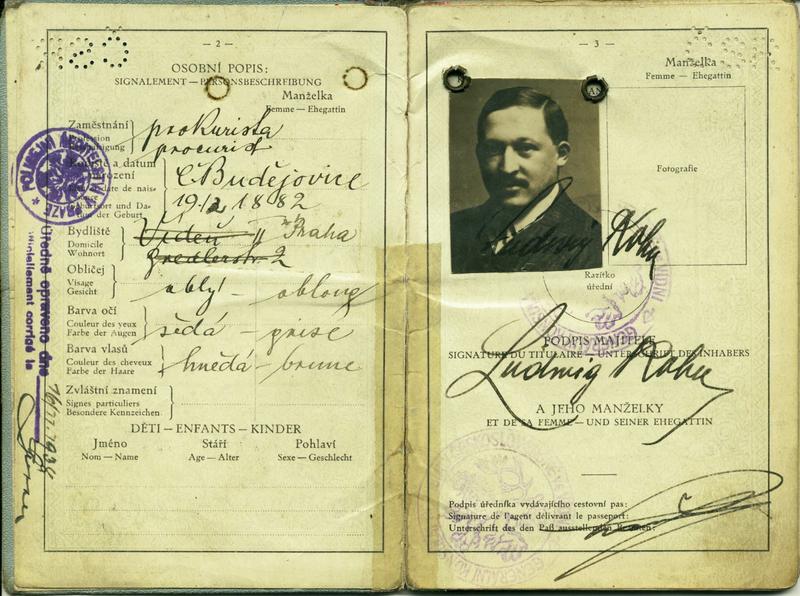 — 2 —
OSOBNÍ POPIS:
SIGNALEMENT — PERSONSBESCHREIBUNG
Manželka
Femme — Ehegattin
Zaměstnání
prokurista
procurist
a datum
Č Budějovice
19/2 1882
tum der Geburt
Bydliště
Domicile
Wohnort
Vídeň II Praha
2
Obličej
Visage
Gesicht
oblý — oblong
Barva očí
Couleur des yeux
Farbe der Augen
šedá — grise
Barva vlasů
Couleur des cheveux
Farbe der Haare
hnědá — brune
Zvláštní znamení
Signes particuliers
Besondere Kennzeichen
DĚTI — ENFANTS — KINDER
Jméno Stáří Pohlaví
Nom — Name Age — Alter Sexe — Geschlecht
POLICEJNÍ ŘEDITELSTVÍ
PRAZE
Úředně opraveno dne
officiellement corrigé le
— 3 —
Manželka
Femme — Ehegattin
Fotografie
Ludwig Kohn
Razítko
úřední
PODPIS MAJITELE
SIGNATURE DU TITULAIRE — UNTERSCHRIFT DES INHABERS
Ludwig Kohn
A JEHO MANŽELKY
ET DE SA FEMME — UND SEINER EHEGATTIN
Podpis úředníka vydávajícího cestovní pas:
Signature de l'agent délivrant le passeport:
Unterschrift des den Paß ausstellenden Beamten:
GENERÁLNÍ